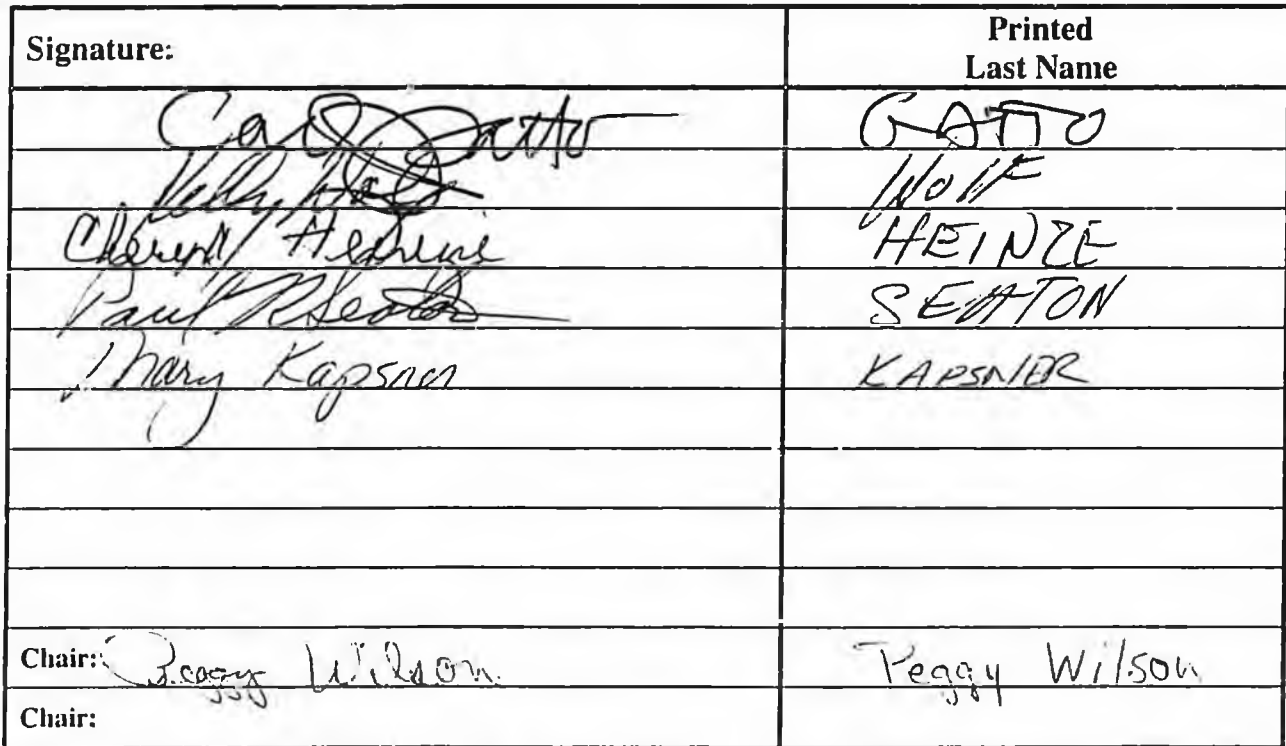 Signature: Printed Last Name
Carl Gatto GATTO
Kelly Wolf Wolf
Cheryll Heinze HEINZE
Paul Seaton SEATON
Mary Kapsner KAPSNER
Chair: Peggy Wilson Peggy Wilson
Chair: